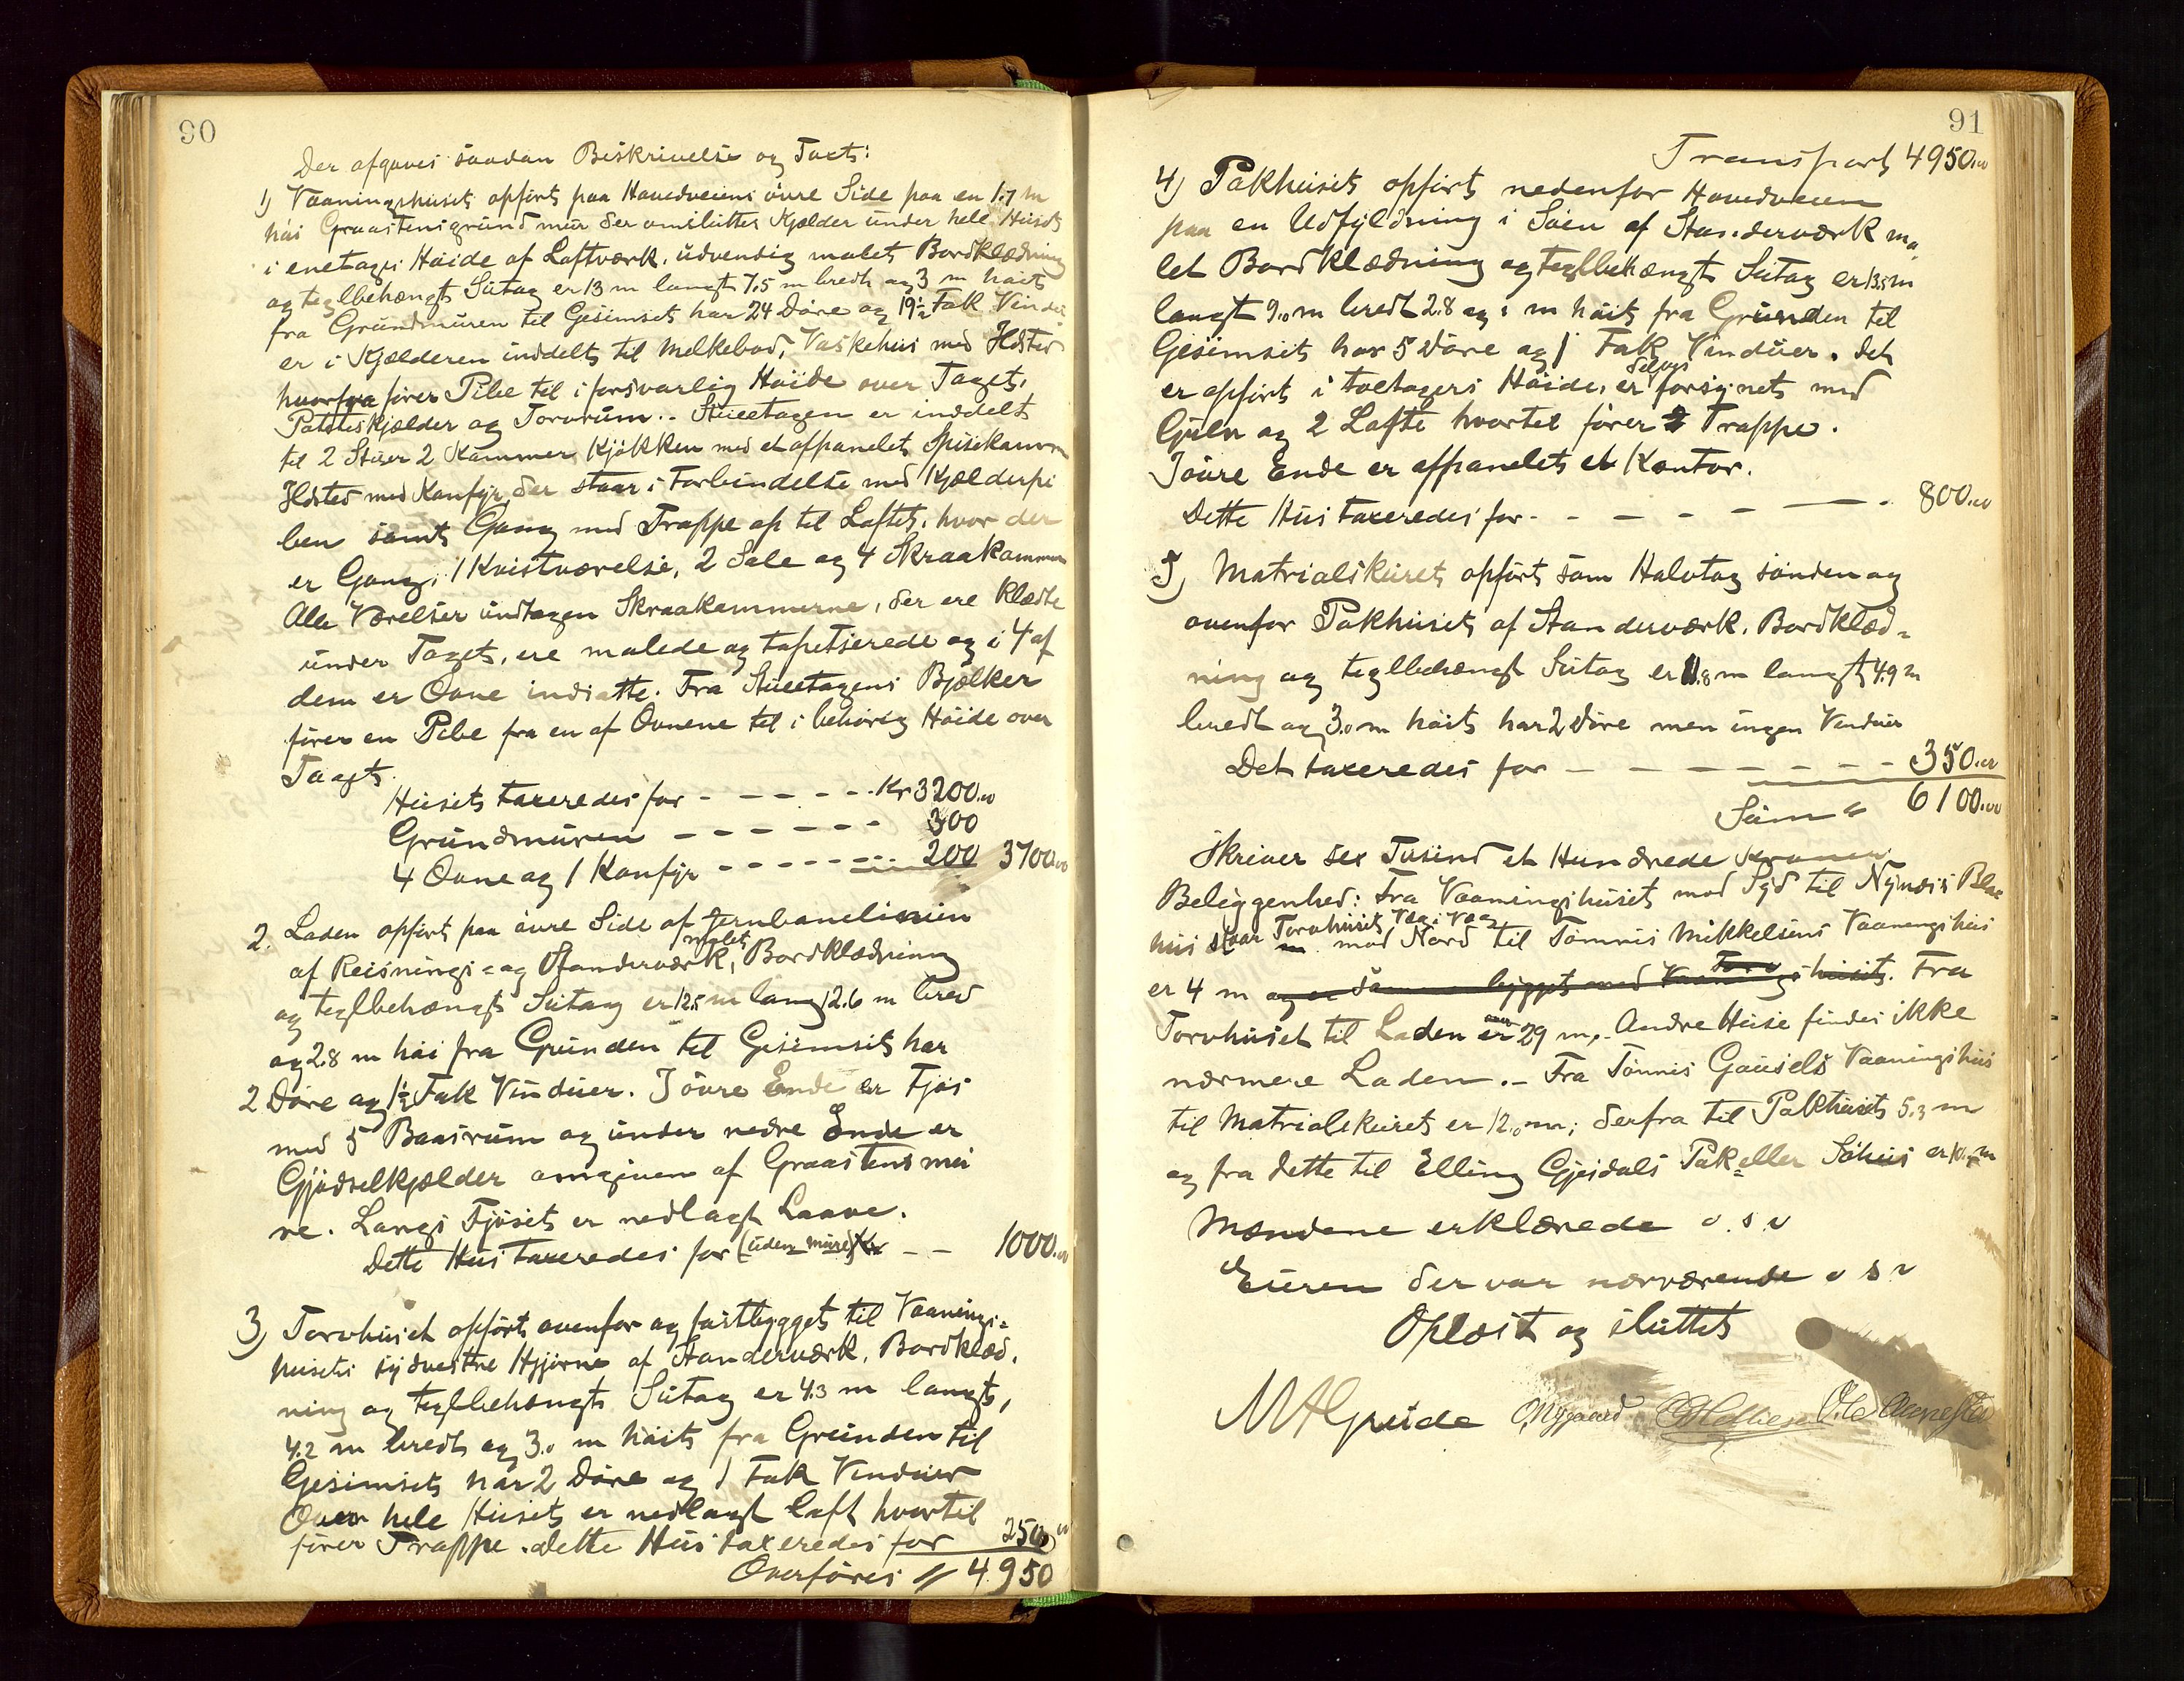 90
Der afgaves saadan Beskrivelse og Taxt:
1) Vaaningshuset opført paa Hovedveiens øvre Side paa en 1.7 m
høi Graastensgrundmur der omslutter Kjælder under hele Huset
i enetages Høide af Laftværk, udvendig malet Bordklædning
og teglbehængt Sutag er 13 m langt 7.5 m bredt og 3 m høit
fra Grundmuren til Gesimset har 24 Døre og 19½ Fak Vindu
er i Kjælderen inddelt til Melkebod, Vaskehus med Ildsted
hvorfra fører Pibe til i forsvarlig Høide over Taget,
Poteteskjælder og Torvrum. - Stueetagen er inddelt
til 2 Stuer 2 Kammer Kjøkken med et afpanelet Spisekammer
Ildsted med Komfyr der staar i Forbindelse med Kjælderpi
ben samt Gang med Trappe op til Loftet, hvor der
er Gang, 1 Kvistværelse, 2 Sale og 4 Skraakammer
Alle Værelser undtagen Skraakammerne, der ere klædte
under Taget, ere malede og tapetserede og i 4 af
dem er Ovne indsatte. Fra Stueetagens Bjælker
fører en Pibe fra en af Ovnene til i behørig Høide over
Taget.
Huset taxeredes for - - - - - Kr 3200.00
Grundmuren - - - - - - 300
4 Ovne og 1 Komfyr - - - - - - 200 3700.00
2. Laden opført paa øvre Side af Jernbanelinien
af Reisnings- og Standerværk, malet Bordklædning
og teglbehængt Sutag er 12.5 m lang 12.6 m bred
og 2.8 m høi fra Grunden til Gesimset har
2 Døre og 1½ Fak Vinduer. I øvre Ende er Fjøs
med 5 Baasrum og under nedre Ende er
Gjødselkjælder omgiven af Graastensmu
re. Langs Fjøset er nedlagt Laave.
Dette Hus taxeredes for (uden mure) Kr - - 1000.00
3) Torvhuset opført ovenfor og fastbygget til Vaanings-
husets sydvestre Hjørne af Standerværk, Bordklæd.
ning og teglbehængt Sutag er 4.3 m langt,
4.2 m bredt og 3.0 m høit fra Grunden til
Gesimset har 2 Døre og 1 Fak Vinduer
Over hele Huset er nedlagt Loft hvortil
fører Trappe. dette Hus taxeredes for 250.00
Overføres " 4950
91
Transport 4950.00
4) Pakhuset opført nedenfor Hovedveien
paa en Udfyldning i Søen af Standerværk ma-
let Bordklædning og teglbehængt Sutag er 13.5 m
langt 9.0 m bredt 2.8 og m høit fra Grunden til
Gesimset har 5 Døre og 1 Fak Vinduer. det
er opført i toetagers Høide, er forsynet med
Gulv og 2 Lofte hvortil fører Trappe.
I øvre Ende er afpanelet et Kontor.
Dette Hus taxeredes for - - - - - - 800.00
5) Matrialskuret opført som Halvtag sønden og
ovenfor Pakhuset af Standerværk, Bordklæd-
ning og teglbehængt Sutag er 11.8 m langt 4.9 m
bredt og 3.0 m høit har 2 Døre men ingen Vinduer
Det taxeredes for - - - - - - - 350.00
Sum " 6100.00
Skriver sex Tusind et Hundrede Kroner.
Beliggenhed: Fra Vaaningshuset mod Syd til
hus staar Torvhuset Væg i Væg mod Nord til Tønnes Mikkelsens Vaaningshus
er 4 m og er sammenbygget med Torvhuset. Fra
Torvhuset til Laden er over 29 m,- Andre Huse findes ikke
nærmere Laden. - Fra Tønnes Gausels Vaaningshus
til Matrialskuret er 12.0 m; derfra til Pakhuset 5.3 m
og fra dette til Elling Gjesdals Pak- eller Søhus er 10. m
Mændene erklærede o.s.v
Euren der var nærværende o s v
Oplæst og sluttet
MAGrude O Nygaard Ole